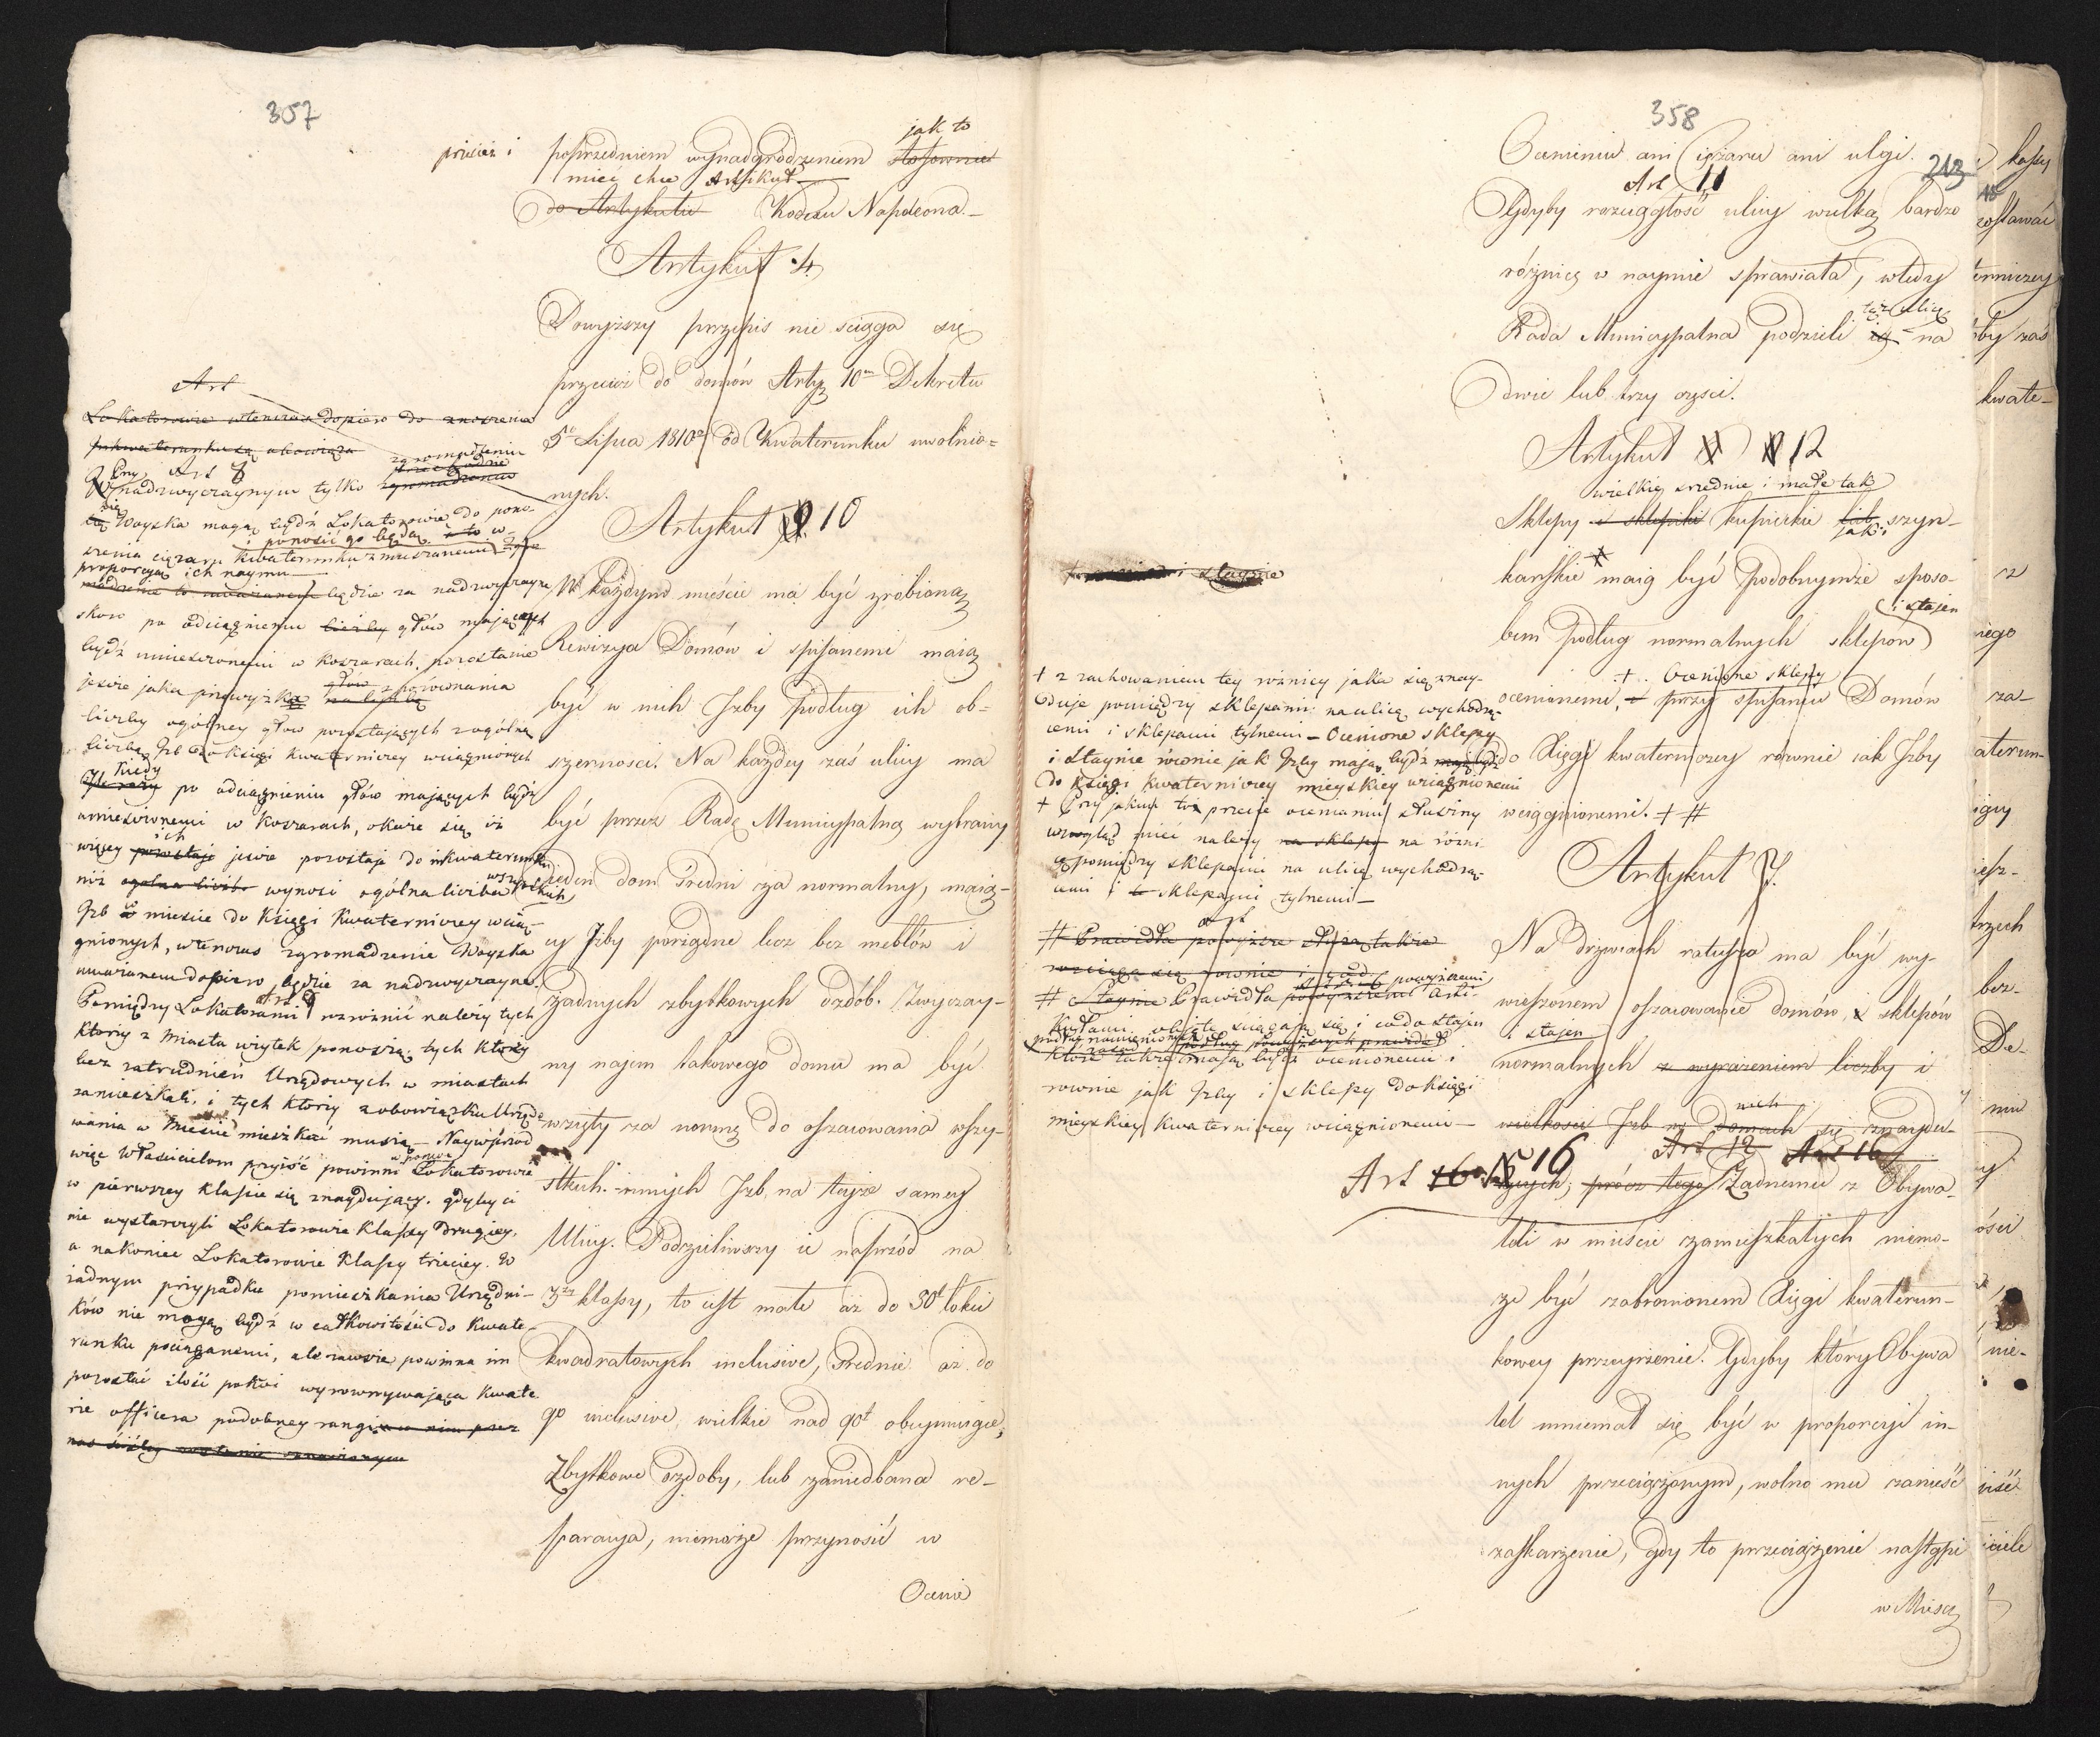 357
jak to
przecież i poprzedniem wynadgrodzeniem stosownie
mieć chce Artykuł
do Artykułu Kodexu Napoleona.
Artykuł 4.
Powyższy przepis nie sciąga się
przecież do domów Arty. 10m Dekretu
5o Lipca 1810 od Kwaterunku uwolnio=
nych.
Artykuł 10
W każdym mieście ma być zrobioną
Rewizya Domów i spisanemi maią
być w nich Jzby podług ich ob=
szerności. Na każdey zaś ulicy ma
być przez Radę Municypalną wybrany
jeden dom średni za normalny, maią-
cy Jzby porządne lecz bez meblów i
żadnych zbytkowych ozdób. Zwyczay-
ny najem takowego domu ma być
wzięty za normę do oszacowania wszy-
stkich innych Jzb, na teyże samey
Ulicy. Podzieliwszy ie naprzód na
3 klassy, to iest małe aż do 30 łokci
kwadratowych inclusive, średnie aż do
90 inclusive, wielkie nad 90 obeymuiące,
Zbytkowe ozdoby, lub zaniedbana re-
paracya, niemoże przynosić w
Ocenie
Art
Lokatorowie wtenczas dopiero do znoszenia
inkwaterunku są obowiązani
Przy Art 8 zgromadzeniu
nadzwyczaynym tylko zgromadzeniu
się Woyska mogą bydź Lokatorowie do pono-
i ponosić go będą
szenia ciężaru Kwaterunku zmuszanemi
proporcyą ich naymu
będzie za nadzwyczayne
skoro po odciągnieniu liczby głów mających
bydź umieszczonemi w koszarach, pozostanie
jeszcze jaka przewyżka głów z porównania
liczby ogólney głów pozostających z ogólną
liczbą Jzb do Księgi Kwaterniczey wciągnionych
Kiedy
po odciągnieniu głów mających bydź
umieszczonemi w koszarach, okaże się iż
ich
więcey pozostaje jeszcze pozostaje do inkwaterunku
niż ogolna liczba wynosi ogólna liczba wszystkich
Jzb w mieście do Księgi Kwaterniczey wcią-
gnionych, wtenczas zgromadzenie Woyska
uważanem dopiero będzie za nadzwyczayne.
Art. 9
Pomiędzy Lokatorami rozróżnić należy tych
którzy z miasta użytek ponoszą, tych którzy
bez zatrudnień Urzędowych w miastach
zamieszkali, i tych którzy z obowiązku Urzędo
wania w mieście mieszkać muszą – Naywprzód
więc Właścicielom przyiść powinni w pomoc Lokatorowie
w pierwszey klassie się znaydujący. gdyby ci
nie wystarczyli Lokatorowie Klassy drugiey,
a nakoniec Lokatorowie Klassy trzeciey. W
żadnym przypadku pomieszkania Urzędni-
ków nie mogą bydź w całkowitości do Kwate-
runku pociąganemi, ale zawsze powinna im
pozostać ilość pokoi wyrownywająca Kwate
rze officera podobney rangi
358
213
Ocenieniu ani Ciężaru ani ulgi.
Art 11
Gdyby rozciągłość ulicy wielką bardzo
różnicę w naymie sprawiała, wtedy
też ulicę
Rada Municypalna podzieli ią na
dwie lub trzy części.
Artykuł 12
wielkie, srednie i małe tak
Sklepy i sklepiki kupieckie lub szyn-
jak i
karskie maią być podobnymże sposo-
i stajen
bem podług normalnych sklepów
+ Ocenione sklepy
ocenionemi, i przy spisaniu Domów
do Xięgi kwaterniczey równie iak Jzby
wciągnionemi. + #
Artykuł 7.
Na drzwiach ratusza ma być wy-
wieszonem oszacowanie domów, sklepów
i stajen
normalnych z wyrażeniem liczby i
wielkości Jzb w domach się znaydu-
Art 12 Art 16
Art 16 N 16
iących; prócz tego Żadnemu z Obywa-
teli w mieście zamieszkałych niemo-
że być zabronionem Xięgi kwaterun-
kowey przeyrzenie. Gdyby który Obywa
tel mniemał się być w proporcyi in-
nych przeciążonym, wolno mu zanieść
zaskarżenie, gdy to przeciążenie nastąpi
w Miesc
i stajnie
+ z zachowaniem tey różnicy jaka się znay-
duje pomiędzy sklepami na ulicę wychodzą-
cemi i sklepami tylnemi – Ocenione sklepy
i stajnie rownie jak Jzby mają bydź
do Księgi kwaterniczey mieyskiey wciągnionemi
+ Przy jakim to przecie ocenianiu słuszny
wzgląd mieć należy na sklepy na różni-
cę pomiędzy sklepami na ulicę wychodzą-
cemi i sklepami tylnemi –
Art
# Prawidła powyższe służą także
rozciąga się rownie i
# Stajnie Prawidła powyższemi Arty-
kułami objęte ściągają się i co do stajen
które także mają bydź ocenionemi i
rownie jak Jzby i sklepy do księgi
mieyskiey Kwaterniczey wciągnionemi –